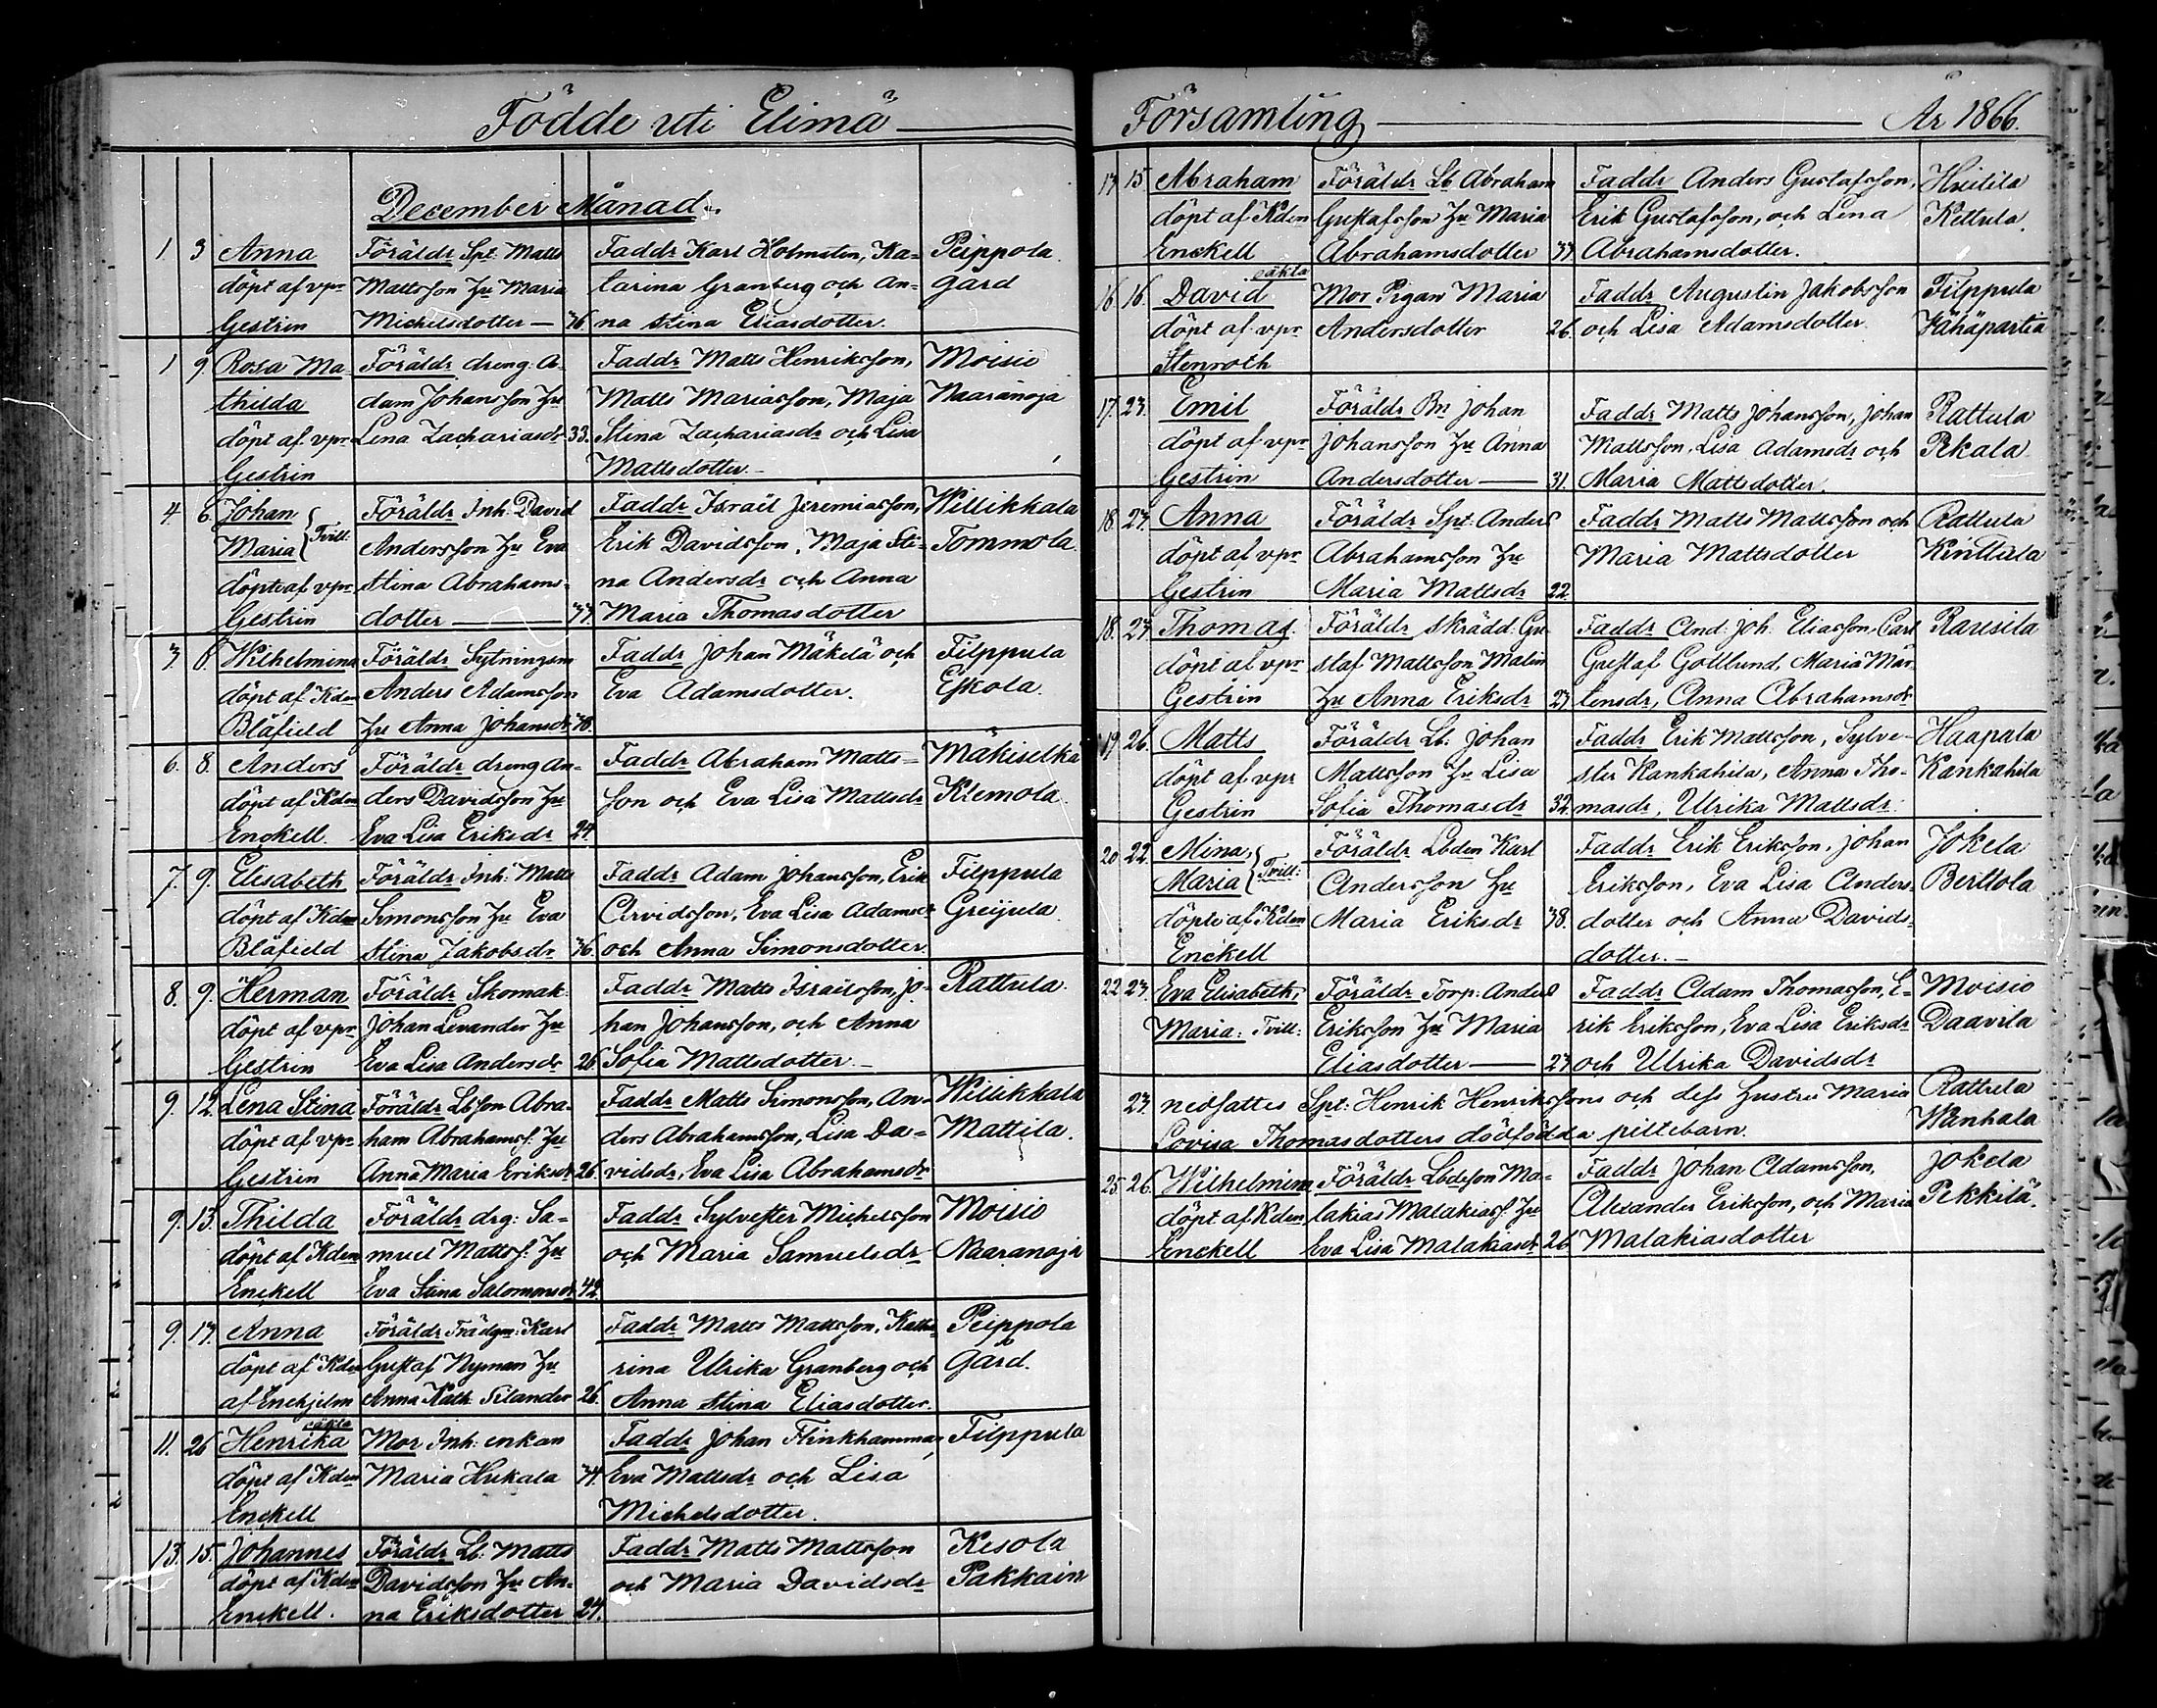 Födde uti Elimä
December Månad.
1. 3 Anna Föräldr Spt: Matts Faddr Karl Holmsten, Ka= Peippola
döpt af vpr Mattsson Hu Maria tarina Granberg och An= gård
Gestrin Michelsdotter — 36 na Stina Eliasdotter.
1 9. Rosa Ma Föräldr dreng. A= Faddr Matts Henriksson, Moisio
thilda dam Johansson Hu Matts Mariasson, Maja Naaranoja
döpt af vpr Lena Zachariasdr 33. Stina Zachariasdr och Lisa
Gestrin Mattsdotter.
4. 6. Johan Föräldr Inh: David Faddr Israël Jeremiasson, Willikkala
Maria Tvill: Andersson Hu Eva Erik Davidsson, Maja Sti= Tommola
döpte af vpr Stina Abrahams= na Andersdr och Anna
Gestrin dotter — 37. Maria Thomasdotter
3 8. Wilhelmina Föräldr Sytningsm Faddr Johan Mäkelä och Filppula
döpt af Kden Anders Adamsson Eva Adamsdotter. Eskola.
Blåfield Hu Anna Johansdr 38.
6. 8. Anders Föräldr dreng An= Faddr Abraham Matts= Mäkiselkä
döpt af Kden ders Davidsson Hu son och Eva Lisa Mattsdr Klemola
Enckell. Eva Lisa Eriksdr 24.
7. 9. Elisabeth Föräldr Inh: Matts Faddr Adam Johansson, Erik Filppula
döpt af Kden Simonsson Hu Eva Arvidsson, Eva Lisa Adamsdr Greijula
Blåfield Stina Jakobsdr 36. och Anna Simonsdotter.
8. 9. Herman Föräldr Skomak: Faddr Matts Israelsson, Jo= Rattula
döpt af vpr Johan Levander Hu han Johansson, och Anna
Gestrin Eva Lisa Andersdr 26 Sofia Mattsdotter.
9. 12. Lena Stina Föräldr Lbson Abra= Faddr Matts Simonsson, An= Willikkala
döpt af vpr ham Abrahamss. Hu ders Abrahamsson, Lisa Da= Mattila.
Gestrin Anna Maria Eriksdr 26. vidsdr, Eva Lisa Abrahamsdr
9. 13. Thilda Föräldr drg: Sa= Faddr Sylvester Michelsson Moisio
döpt af Kden muel Mattss: Hu och Maria Samuelsdr Naaranoja
Enckell Eva Stina Salomonsdr 42.
9. 17. Anna Föräldr Trädgm: Karl Faddr Matts Mattsson, Katha Peippola
döpt af Kden Gustaf Nyman Hu rina Ulrika Granberg och Gård.
af Enehjelm Anna Kath. Silander 26. Anna Stina Eliasdotter.
oäkta
11. 26 Henrika Mor Inh: enkan Faddr Johan Flinkhammar, Filppula
döpt af Kden Maria Hukala 34. Eva Mattsdr och Lisa
Enckell Michelsdotter.
13. 15. Johannes Föräldr Lb: Matts Faddr Matts Mattsson Kesola
döpt af Kden Davidsson Hu An= och Maria Davidsdr Pakkain
Enckell. na Eriksdotter 24.
Församling År 1866.
14. 15 Abraham Föräldr Lb Abraham Faddr Anders Gustafsson,
döpt af Kden Gustafsson Hu Maria Erik Gustafsson, och Lena Kettula.
Enckell Abrahamsdotter 33. Abrahamsdotter.
oäkta
16. 16. David Mor Pigan Maria Faddr Augustin Jakobsson Filppula
döpt af vpr Andersdotter 26. och Lisa Adamsdotter Vähäpartia
Stenroth
17. 23. Emil Föräldr Bn Johan Faddr Matts Johansson, Johan Rattula
döpt af vpr Johansson Hu Anna Mattsson, Lisa Adamsdr och Pekala
Gestrin Andersdotter — 31. Maria Mattsdotter.
18. 27. Anna Föräldr Spt: Anders Faddr Matts Mattsson och Rattula
döpt af vpr Abrahamsson Hu Maria Mattsdotter Kinttula
Gestrin Maria Mattsdr 22.
18. 27. Thomas. Föräldr skrädd: Gu= Faddr And: Joh. Eliasson, Carl Raussila
döpt af vpr staf Mattsson Malin Gustaf Gottlund, Maria Mår
Gestrin Hu Anna Eriksdr 27. tensdr, Anna Abrahamsdr
19. 26. Matts Föräldr Lb: Johan Faddr Erik Mattsson, Sylve= Haapala
döpt af vpr Mattsson Hu Lisa ster Kankahila, Anna Tho= Kankahila
Gestrin Sofia Thomasdr 32. masdr, Ulrika Mattsdr.
20 22. Mina, Föräldr Lbden Karl Faddr Erik Eriksson, Johan Jokela
Maria Tvill: Andersson Hu Eriksson, Eva Lisa Anders= Berttola
döpte af Kden Maria Eriksdr 38. dotter och Anna Davids=
Enckell dotter.
22. 23. Eva Elisabeth, Föräldr Torp: Anders Faddr Adam Thomasson, E= Moisio
Maria: Tvill: Eriksson Hu Maria rik Eriksson, Eva Lisa Eriksdr Daavila
Eliasdotter — 27. och Ulrika Davidsdr
23. nedsattes Spt: Henrik Henrikssons och dess hustru Maria Rattula
Lovisa Thomasdotters dödfödda piltebarn. Wanhala
25. 26. Wilhelmina Föräldr Lbdeson Ma= Faddr Johan Adamsson, Jokela
döpt af Kden lakias Malakiass: Hu Alexander Eriksson, och Maria Pekkilä.
Enckell Eva Lisa Malakiasdr 26. Malakiasdotter